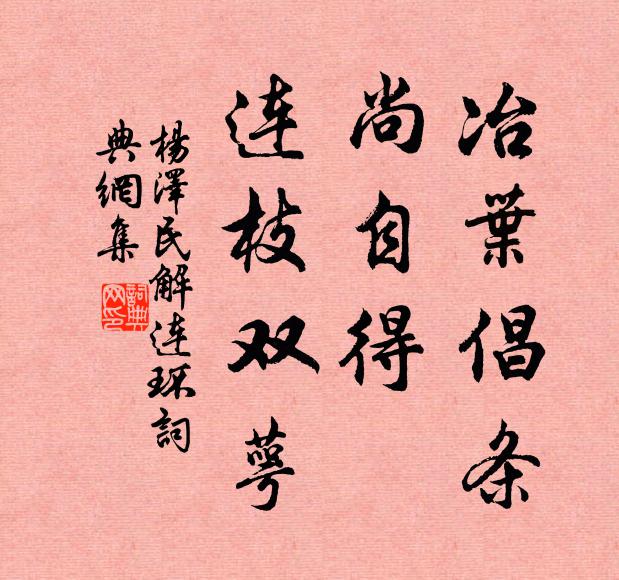 冶葉倡条
尚自得
连枝双萼
楊澤民解连环詞
典網集
詞典网印